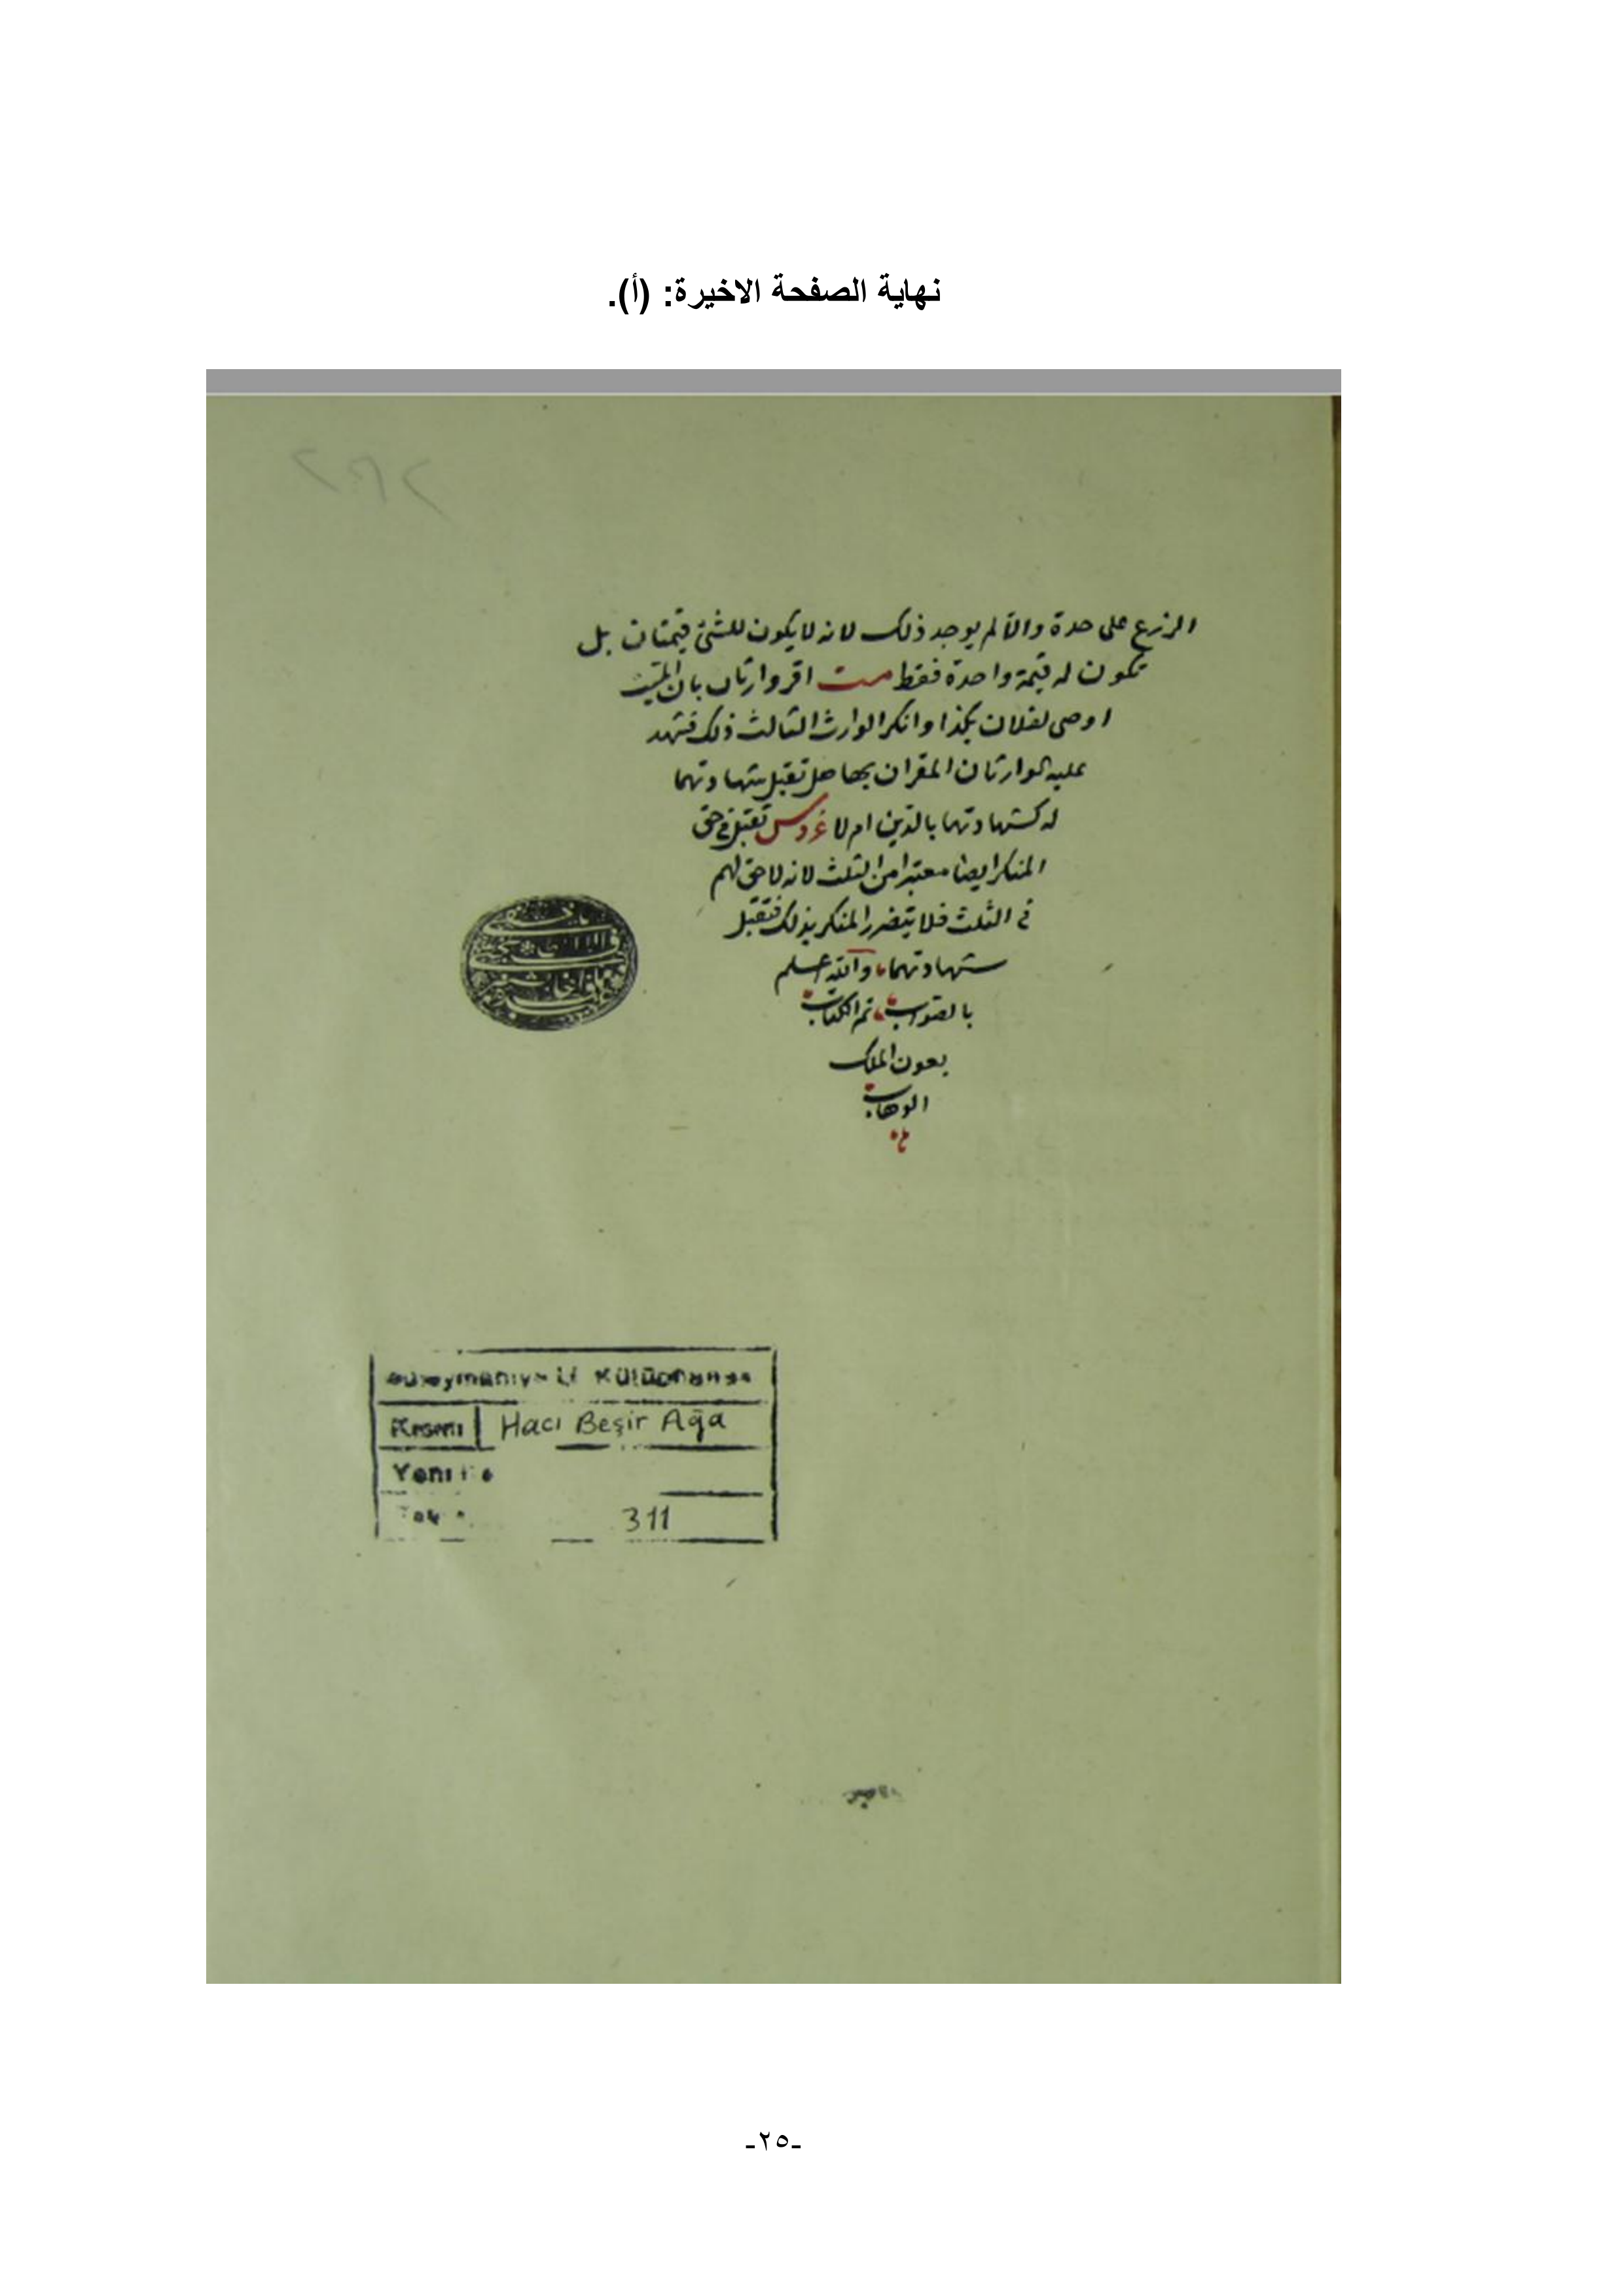 نهاية الصفحة الاخيرة: (أ).
الزرع على حدة والا لم يوجد ذلك لانه لا يكون للشئ قيمتان بل
تكون له قيمة واحدة فقط اقر وارثان بان الميت
اوصى لفلان بكذا وانكر الوارث الثالث ذلك فشهد
عليه الوارثان المقران بها هل تقبل شهادتهما
له كشهادتهما بالدين ام لا تقبل في حق
المنكر ايضا معتبرا من الثلث لانه لا حق لهم
في الثلث فلا يتضرر المنكر بذلك فتقبل
شهادتهما والله اعلم
بالصواب تم الكتاب
بعون الملك
الوهاب
Kısmı Hacı Beşir Ağa
Yeni
311
-٢٥-